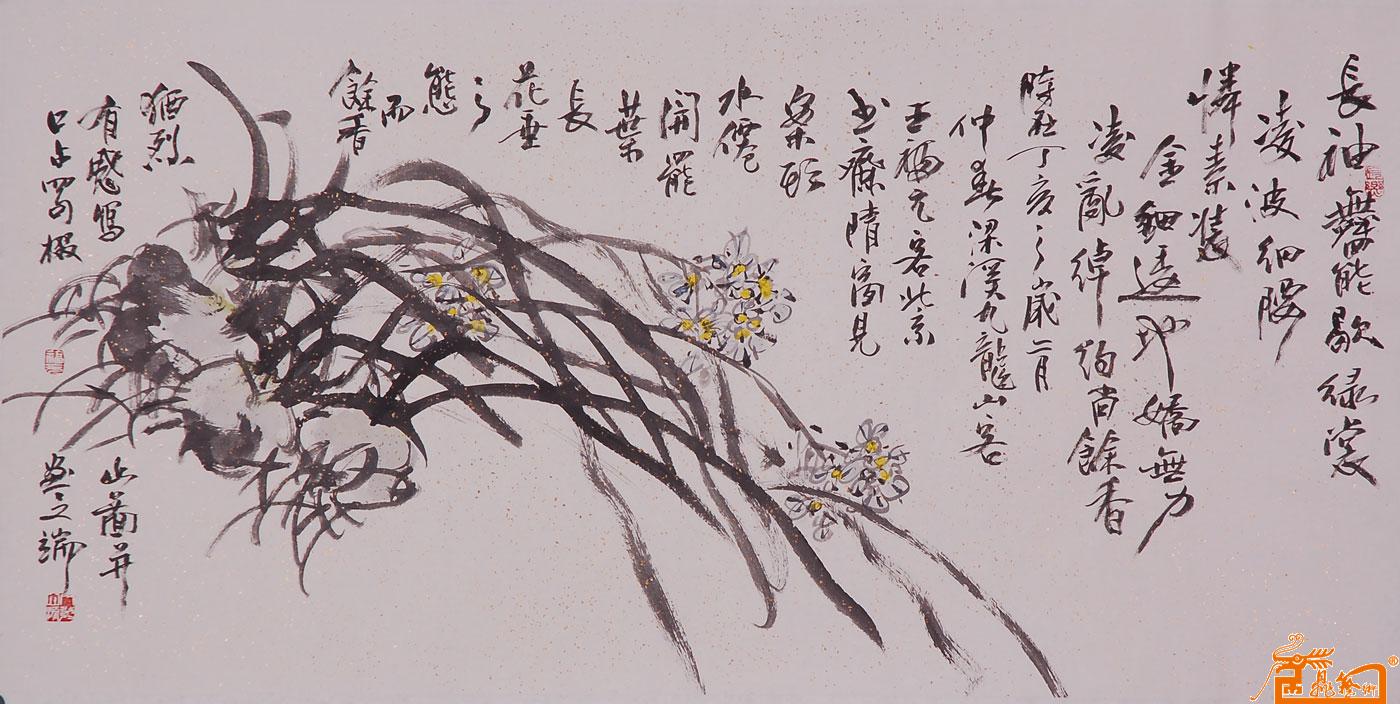 長袖舞能歇綠裳
凌波細
憐素裝
金鈿遠地嬌無力
凌亂綽約尚餘香
時在丁亥之歲二月
仲春梁溪九龍山客
王福元客北京
見
案頭
水僊
開罷
葉
長
花垂
之
態
而
餘香
猶烈
有感寫
此圖并
口占四句掇
於之端